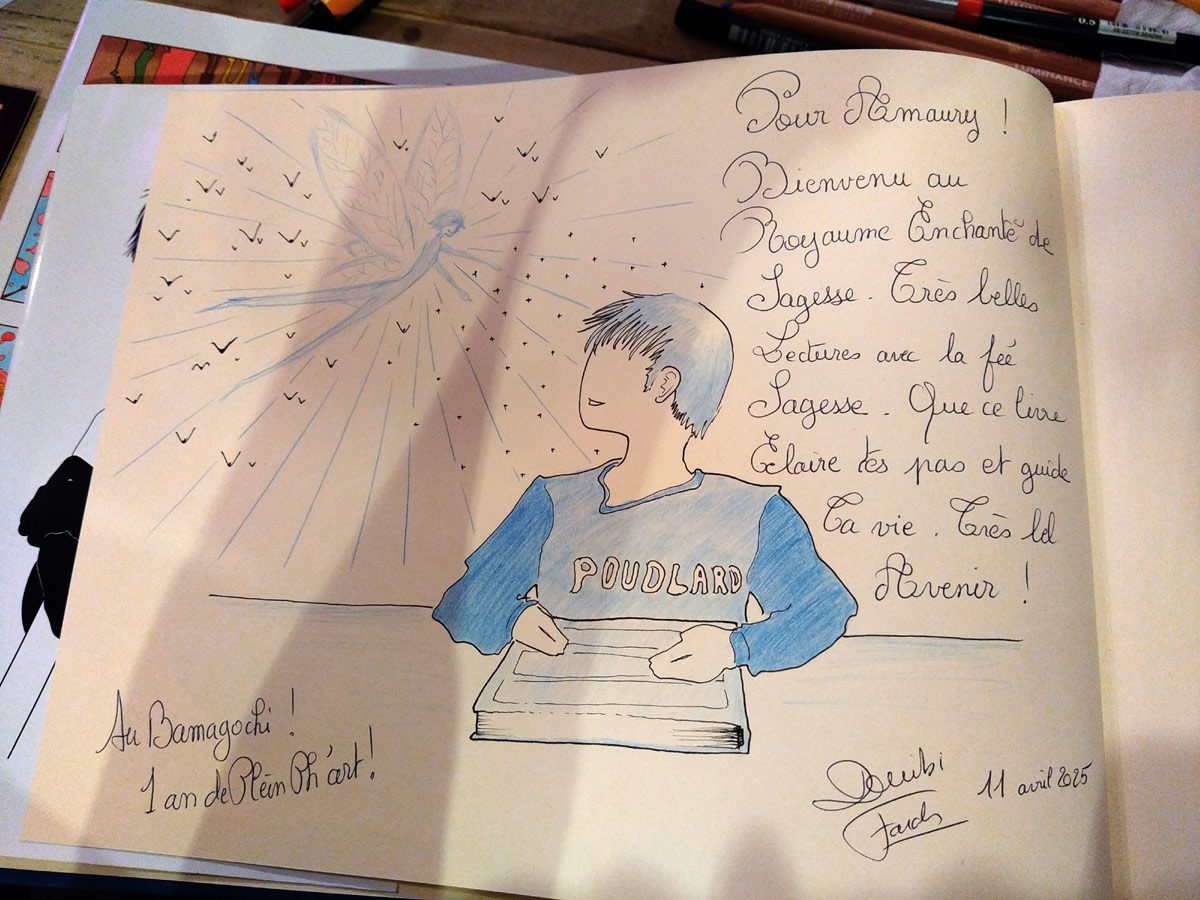 LUMINANCE
0.5
Pour Amaury !
Bienvenu au
Royaume Enchanté de
Sagesse. Très belles
Lectures avec la fée
Sagesse. Que ce livre
Éclaire tes pas et guide
Ta vie. Très bel
Avenir !
POUDLARD
Au Bamagochi !
1 an de Plein Ph'art !
11 avril 2025